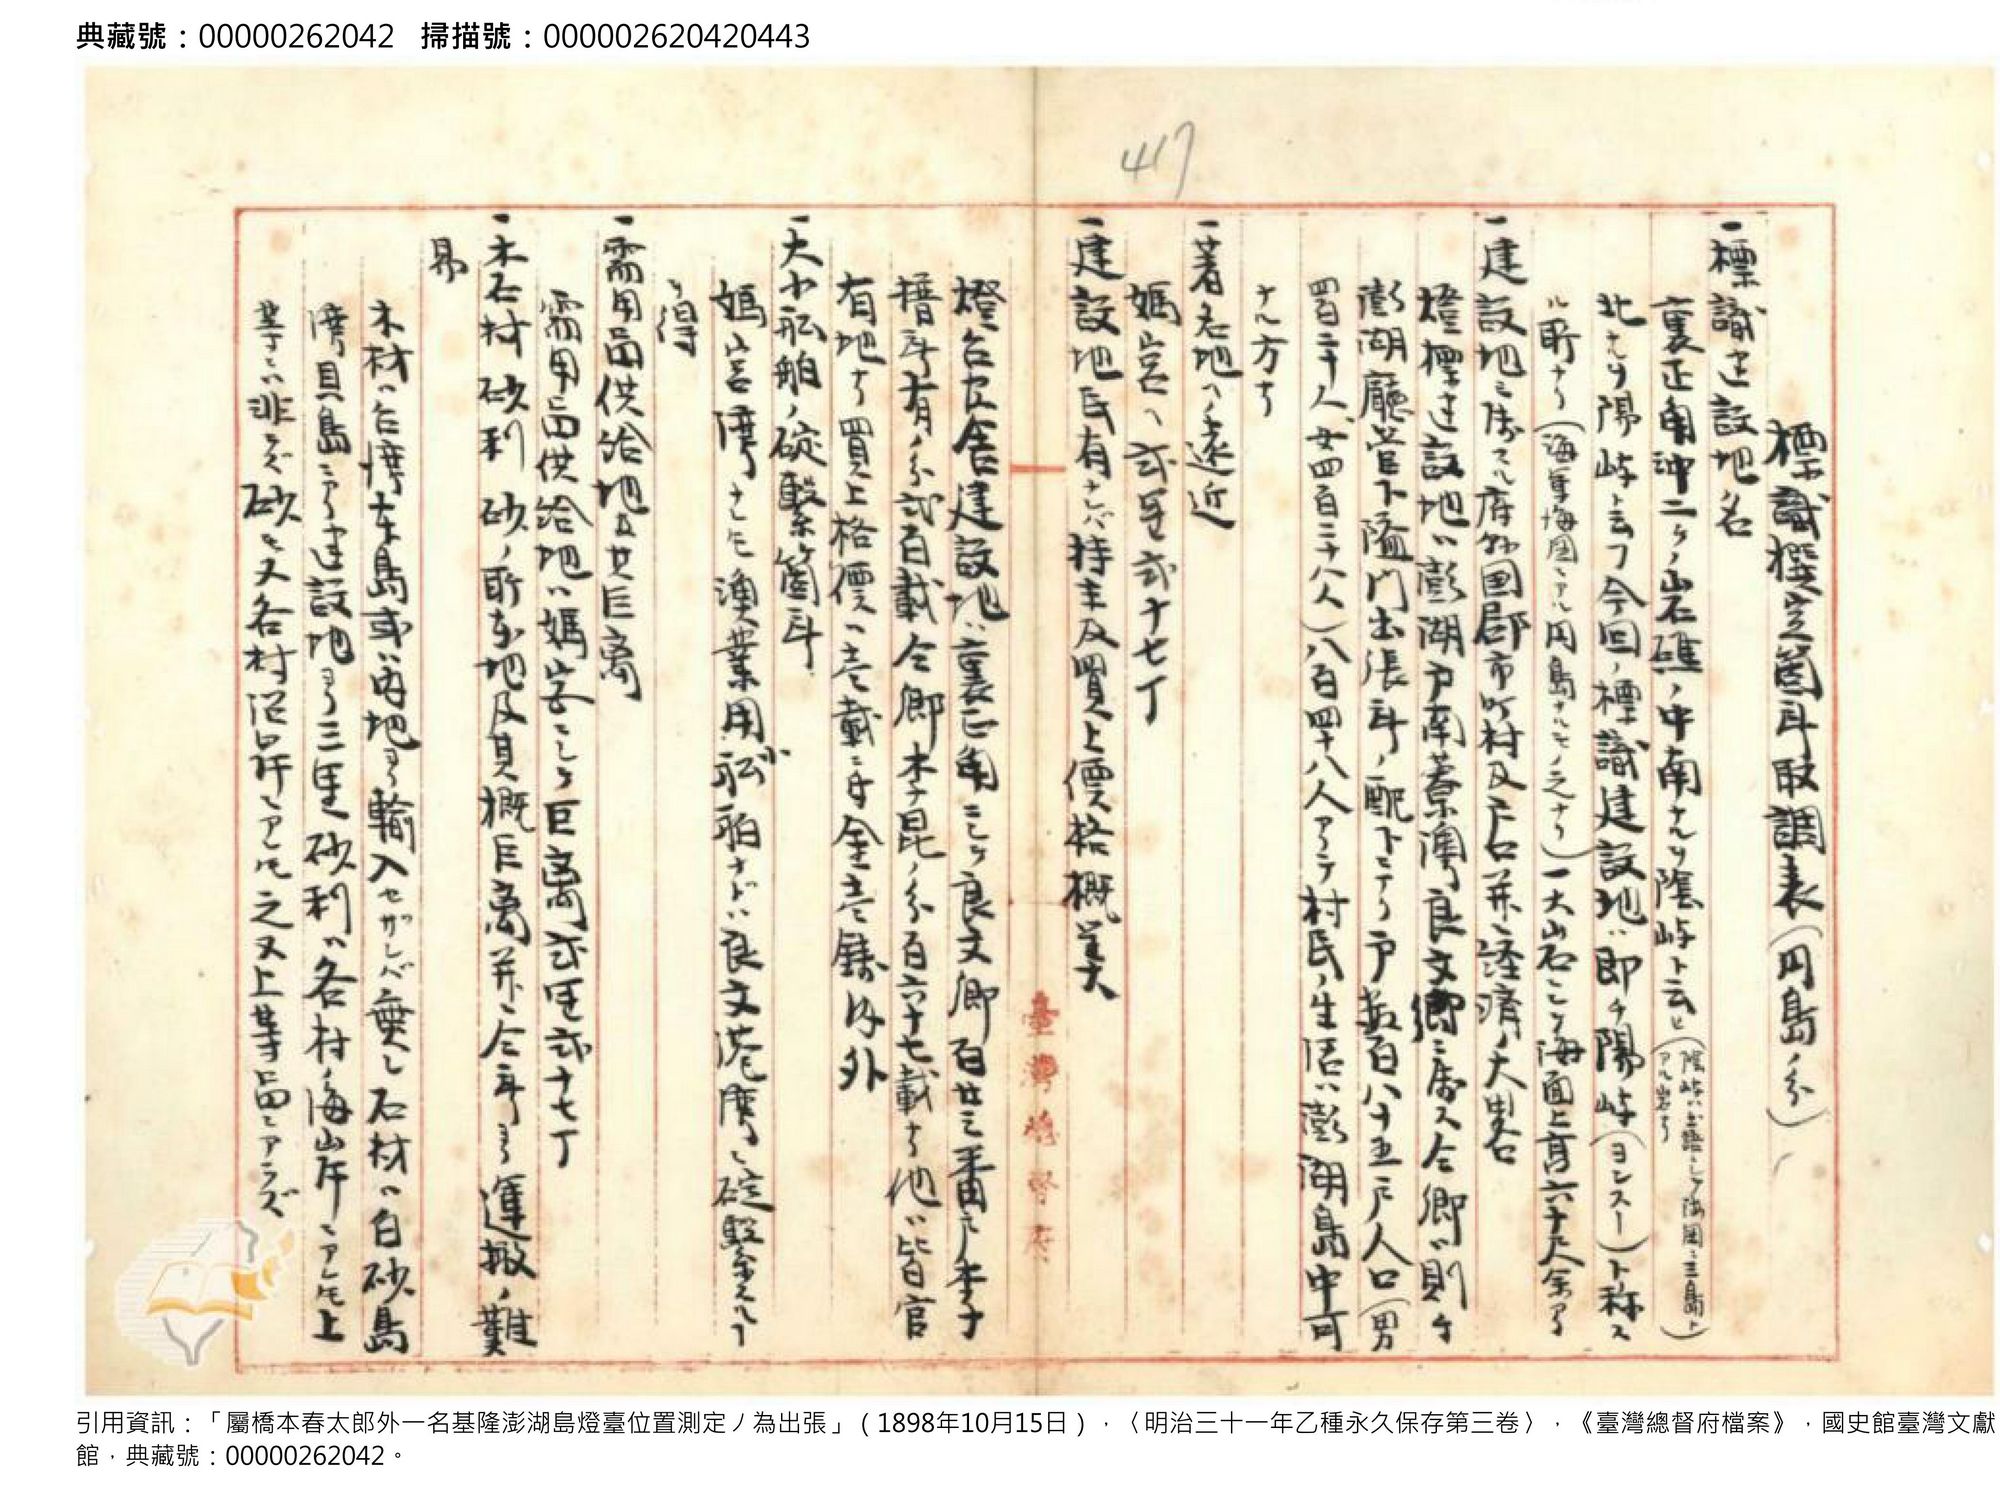 典藏號：00000262042 掃描號：000002620420443
417
標識撰定箇所取調表（円島ノ分）
一標識建設地名
裏正角沖二ケノ岩礁ノ中南ナルヲ陰嶼ト云ヒ
北ナルヲ陽嶼ト云フ今回ノ標識建設地ハ即チ陽嶼（ヨンスー）ト称ス
ル所ナリ（海軍海図ニアル円島ナルモノ之ナリ）一大山石ニシテ海面上高六十尺余アリ
一建設地ニ属スル府県国郡市町村及戸口并ニ経済ノ大畧
燈標建設地ハ澎湖嶋南寮澳良文郷ニ属ス仝郷ハ則チ
澎湖廳管下隘門出張所ノ配下ニテリ戸数百八十五戸人口（男
四百二十人女四百二十八人）八百四十八人アリテ村民ノ生活ハ澎湖島中可
ナル方ナリ
一著名地ヘノ遠近
媽宮ヘ弐里弐十七丁
一建設地民有ナレバ持主及買上價格概畧
燈台官舎建設地ハ裏正角ニシテ良文郷百廿三番戸李子
搢所有ノ分弐百載仝郷李昆ノ分百六十七載ナリ他ハ皆官
有地ナリ買上格價ハ壱載ニ付金壱錢内外
一大小舩舶ノ碇繋箇所
媽宮湾ナレモ漁業用小舩舶ナドハ良文港湾ニ碇繋スル
ヲ得
一需用品供給地及其巨离
需用品供給地ハ媽宮ニシテ巨离弐里弐十七丁
一木石材砂利砂ノ所在地及其概巨离并ニ仝所ヨリ運搬ノ難
易
木材ハ台湾本島或ハ内地ヨリ輸入セザレバ無シ石材ハ白砂島
湾貝島ニアリ建設地ヨリ三里砂利ハ各村ノ海岸ニアレモ上
等ニハ非ズ砂モ又各村沿岸ニアレモ之又上等品ニアラズ
臺灣總督府
引用資訊：「屬橋本春太郎外一名基隆澎湖島燈臺位置測定ノ為出張」（1898年10月15日），〈明治三十一年乙種永久保存第三卷〉，《臺灣總督府檔案》，國史館臺灣文獻
館，典藏號：00000262042。